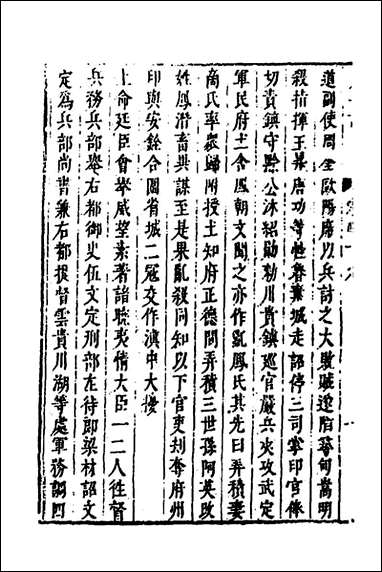 道副使周 歐陽 以兵討之大 賊遂陷 甸嵩明
殺指揮王 唐功等 走詔停三司掌印官俸
切責鎮守黔公沐紹勛勑川貴鎮巡官嚴兵夾攻武定
軍民府土舍鳳朝文聞之亦作亂鳳氏其先曰弄積妻
商氏率衆歸附授土知府正德間弄積三世孫阿英改
姓鳳潛畜異謀至是果亂殺同知以下官吏刦奪府州
印與安銓合圍省城二寇交作滇中大擾
上命廷臣會舉威望素著諳曉夷情大臣一二人徃督
兵務兵部舉右都御史伍文定刑部左侍郎梁材詔文
定爲兵部尚書兼右都提督雲貴川湖等處軍務調四